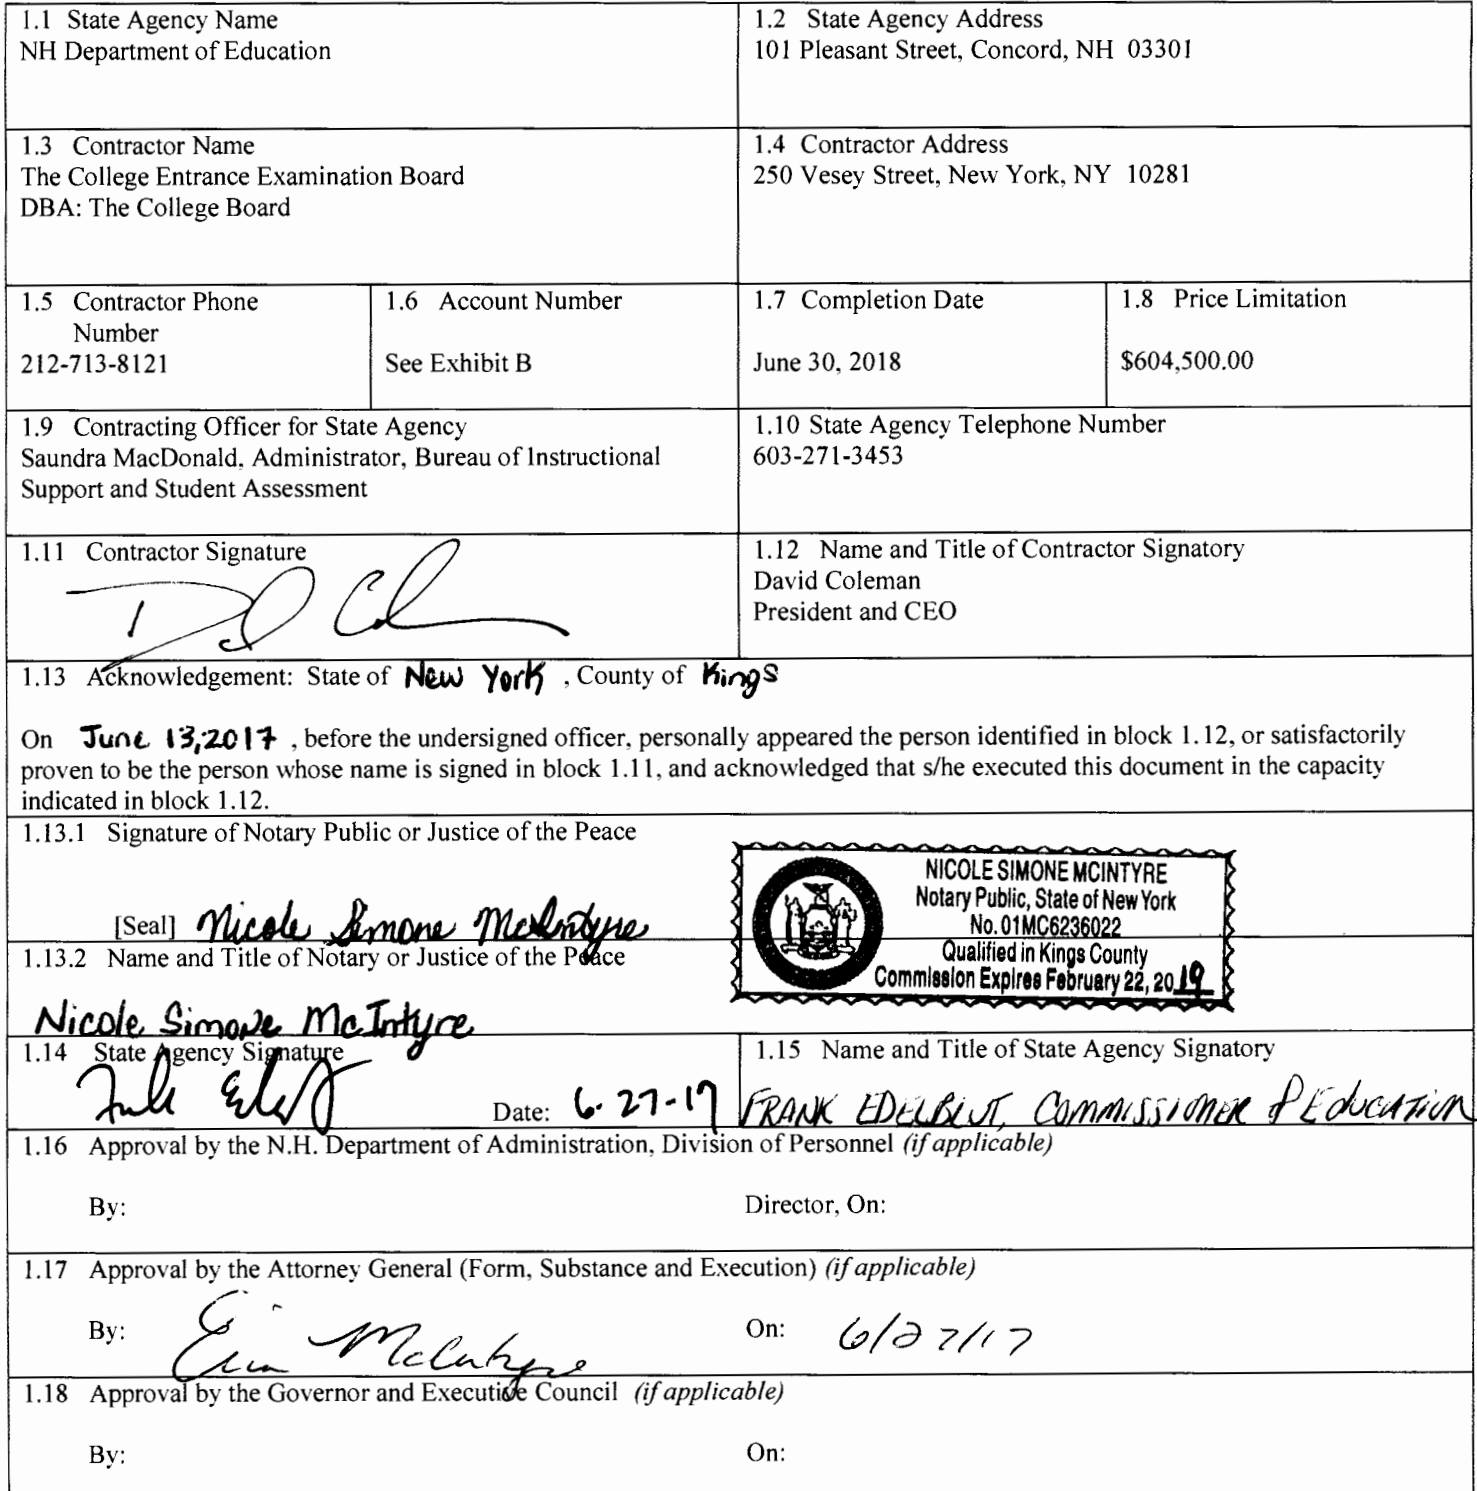 1.1 State Agency Name
NH Department of Education
1.2 State Agency Address
101 Pleasant Street, Concord, NH 03301
1.3 Contractor Name
The College Entrance Examination Board
DBA: The College Board
1.4 Contractor Address
250 Vesey Street, New York, NY 10281
1.5 Contractor Phone
Number
212-713-8121
1.6 Account Number
See Exhibit B
1.7 Completion Date
June 30, 2018
1.8 Price Limitation
$604,500.00
1.9 Contracting Officer for State Agency
Saundra MacDonald, Administrator, Bureau of Instructional
Support and Student Assessment
1.10 State Agency Telephone Number
603-271-3453
1.11 Contractor Signature
1.12 Name and Title of Contractor Signatory
David Coleman
President and CEO
1.13 Acknowledgement: State of New York , County of Kings
On June 13, 2017 , before the undersigned officer, personally appeared the person identified in block 1.12, or satisfactorily
proven to be the person whose name is signed in block 1.11, and acknowledged that s/he executed this document in the capacity
indicated in block 1.12.
1.13.1 Signature of Notary Public or Justice of the Peace
[Seal] Nicole Simone McIntyre
NICOLE SIMONE MCINTYRE
Notary Public, State of New York
No. 01MC6236022
Qualified in Kings County
Commission Expires February 22, 2019
1.13.2 Name and Title of Notary or Justice of the Peace
Nicole Simone McIntyre
1.14 State Agency Signature
Date: 6-27-17
1.15 Name and Title of State Agency Signatory
FRANK EDELBLUT, COMMISSIONER of EDUCATION
1.16 Approval by the N.H. Department of Administration, Division of Personnel (if applicable)
By:
Director, On:
1.17 Approval by the Attorney General (Form, Substance and Execution) (if applicable)
By: Erin McIntyre
On: 6/27/17
1.18 Approval by the Governor and Executive Council (if applicable)
By:
On: